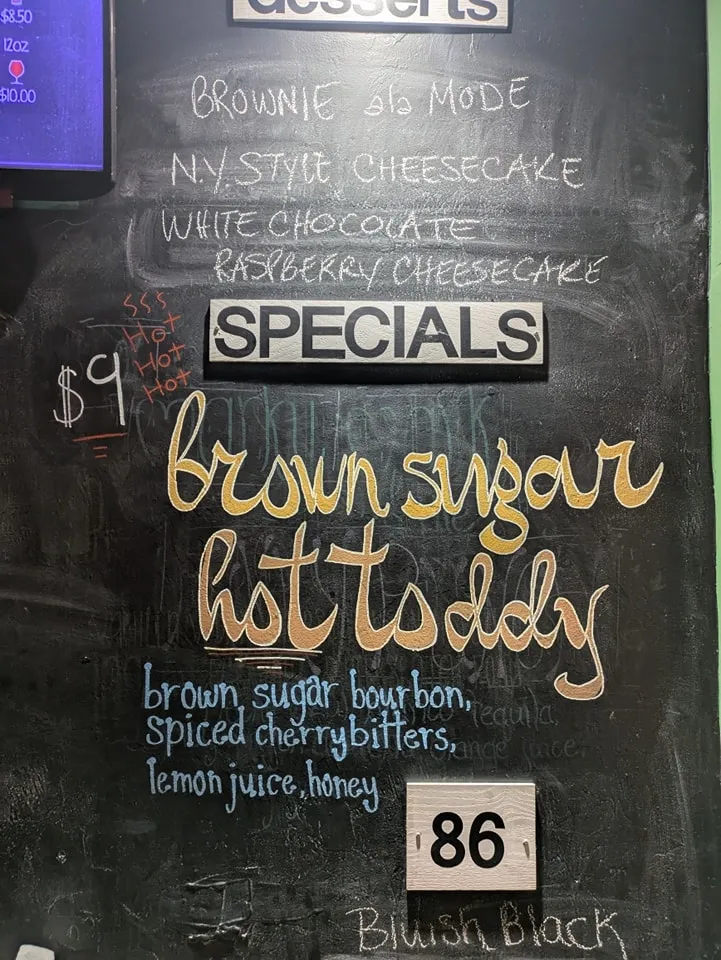 desserts
$8.50
12oz
$10.00
BROWNIE ala MODE
N.Y. STYLE CHEESECAKE
WHITE CHOCOLATE
RASPBERRY CHEESECAKE
SPECIALS
$9
SSS
Hot
Hot
Hot
brown sugar
hot toddy
brown sugar bourbon,
spiced cherry bitters,
lemon juice, honey
tequila,
orange juice,
86
Bluish Black